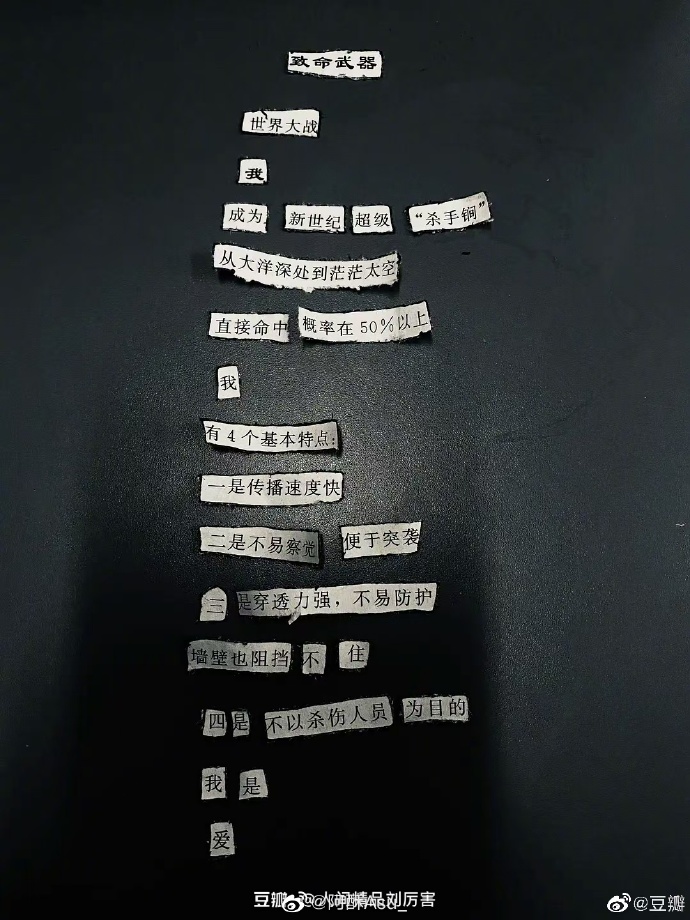 致命武器
世界大战
我
成为 新世纪 超级 “杀手锏”
从大洋深处到茫茫太空
直接命中 概率在50%以上
我
有4个基本特点：
一是传播速度快
二是不易察觉 便于突袭
三是穿透力强，不易防护
墙壁也阻挡不住
四是 不以杀伤人员 为目的
我是
爱
豆瓣@人间精品刘厉害
@豆瓣